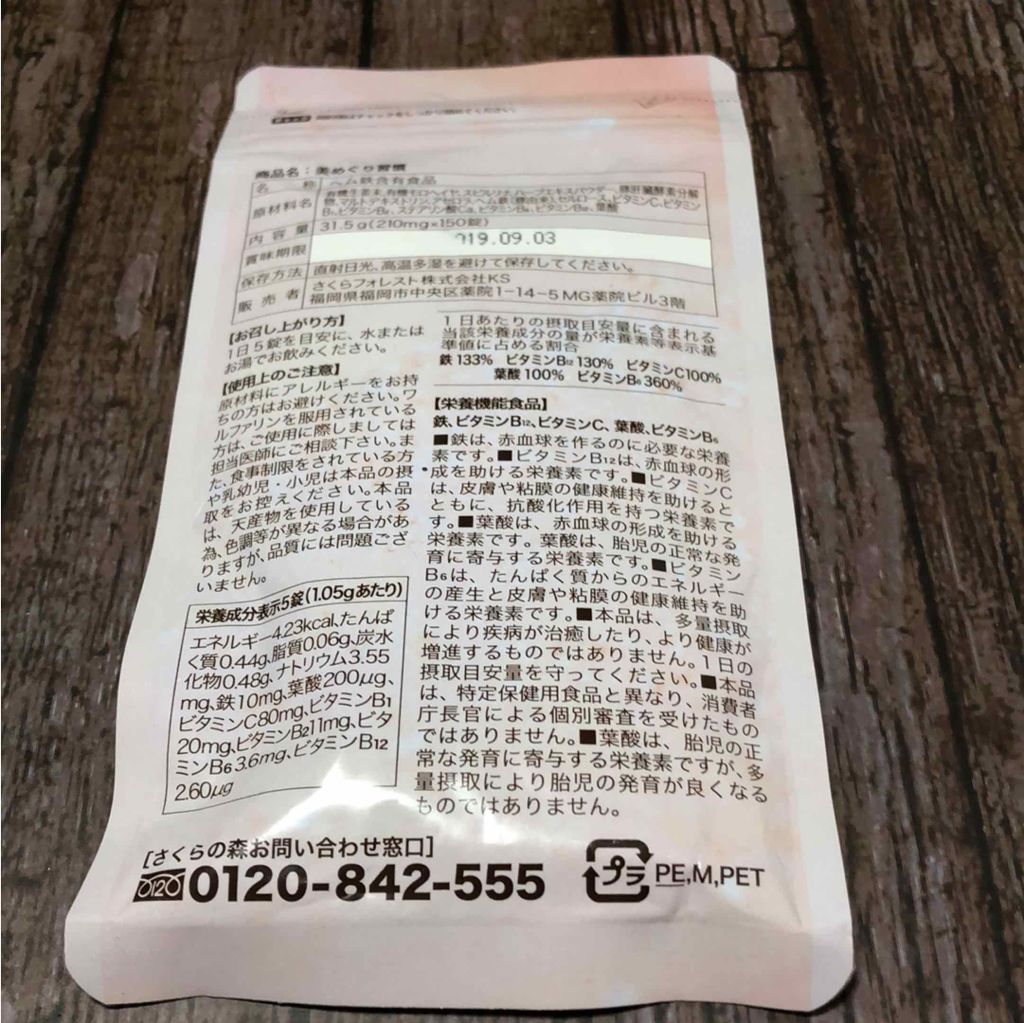 チャックをしっかり閉めてください。
商品名:美めぐり習慣
名 称 ヘム鉄含有食品
原材料名 有機生姜末、有機モロヘイヤ、スピルリナ、ハーブエキスパウダー、豚肝臓酵素分解
物、マルトデキストリン、アセロラ、ヘム鉄(豚由来)、セルロース、ビタミンC、ビタミン
B₁、ビタミンB₂、ステアリン酸Ca、ビタミンB₆、ビタミンB₁₂、葉酸
内 容 量 31.5g(210mg×150錠)
賞味期限 019.09.03
保存方法 直射日光、高温多湿を避けて保存してください。
販 売 者 さくらフォレスト株式会社KS
福岡県福岡市中央区薬院1-14-5 MG薬院ビル3階
【お召し上がり方】
1日5錠を目安に、水または
お湯でお飲みください。
【使用上のご注意】
原材料にアレルギーをお持
ちの方はお避けください。ワ
ルファリンを服用されている
方は、ご使用に際しましては
担当医師にご相談下さい。ま
た、食事制限をされている方
や乳幼児・小児は本品の摂
取をお控えください。本品
は、天産物を使用している
為、色調等が異なる場合があ
りますが、品質には問題ござ
いません。
栄養成分表示5錠(1.05gあたり)
エネルギー4.23kcal、たんぱ
く質0.44g、脂質0.06g、炭水
化物0.48g、ナトリウム3.55
mg、鉄10mg、葉酸200μg、
ビタミンC80mg、ビタミンB1
20mg、ビタミンB211mg、ビタ
ミンB6 3.6mg、ビタミンB12
2.60μg
1日あたりの摂取目安量に含まれる
当該栄養成分の量が栄養素等表示基
準値に占める割合
鉄133% ビタミンB₁₂130% ビタミンC100%
葉酸100% ビタミンB₆360%
【栄養機能食品】
鉄、ビタミンB₁₂、ビタミンC、葉酸、ビタミンB₆
■鉄は、赤血球を作るのに必要な栄養
素です。■ビタミンB₁₂は、赤血球の形
成を助ける栄養素です。■ビタミンC
は、皮膚や粘膜の健康維持を助けると
ともに、抗酸化作用を持つ栄養素で
す。■葉酸は、赤血球の形成を助ける
栄養素です。葉酸は、胎児の正常な発
育に寄与する栄養素です。■ビタミン
B₆は、たんぱく質からのエネルギー
の産生と皮膚や粘膜の健康維持を助
ける栄養素です。■本品は、多量摂取
により疾病が治癒したり、より健康が
増進するものではありません。1日の
摂取目安量を守ってください。■本品
は、特定保健用食品と異なり、消費者
庁長官による個別審査を受けたもの
ではありません。■葉酸は、胎児の正
常な発育に寄与する栄養素ですが、多
量摂取により胎児の発育が良くなる
ものではありません。
[さくらの森お問い合わせ窓口]
0120-842-555
プラ PE,M,PET